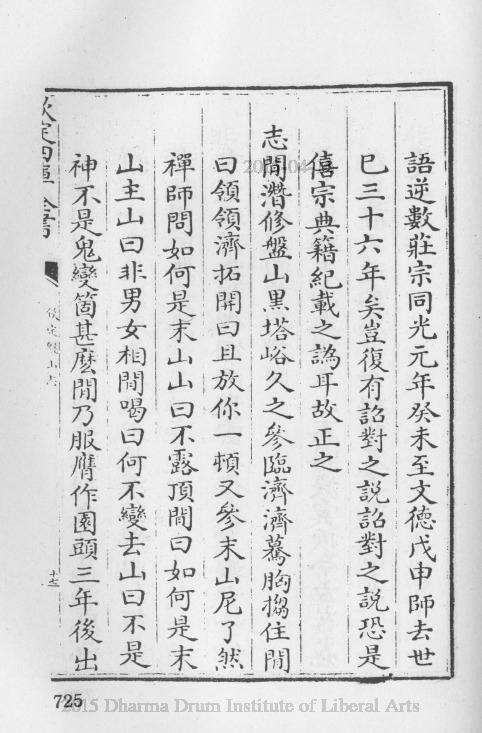 語逆數莊宗同光元年癸未至文德戊申師去世
巳三十六年矣豈復有詔對之說詔對之說恐是
僖宗典籍紀載之譌耳故正之
志閒潛修盤山黑塔峪久之參臨濟濟驀胸搊住閒
曰領領濟拓開曰且放你一頓又參末山尼了然
禪師問如何是末山山曰不露頂閒曰如何是末
山主山曰非男女相閒喝曰何不變去山曰不是
神不是鬼變箇甚麽閒乃服膺作園頭三年後出
欽定四庫全書
欽定盤山志
十七
725
2015 Dharma Drum Institute of Liberal Arts